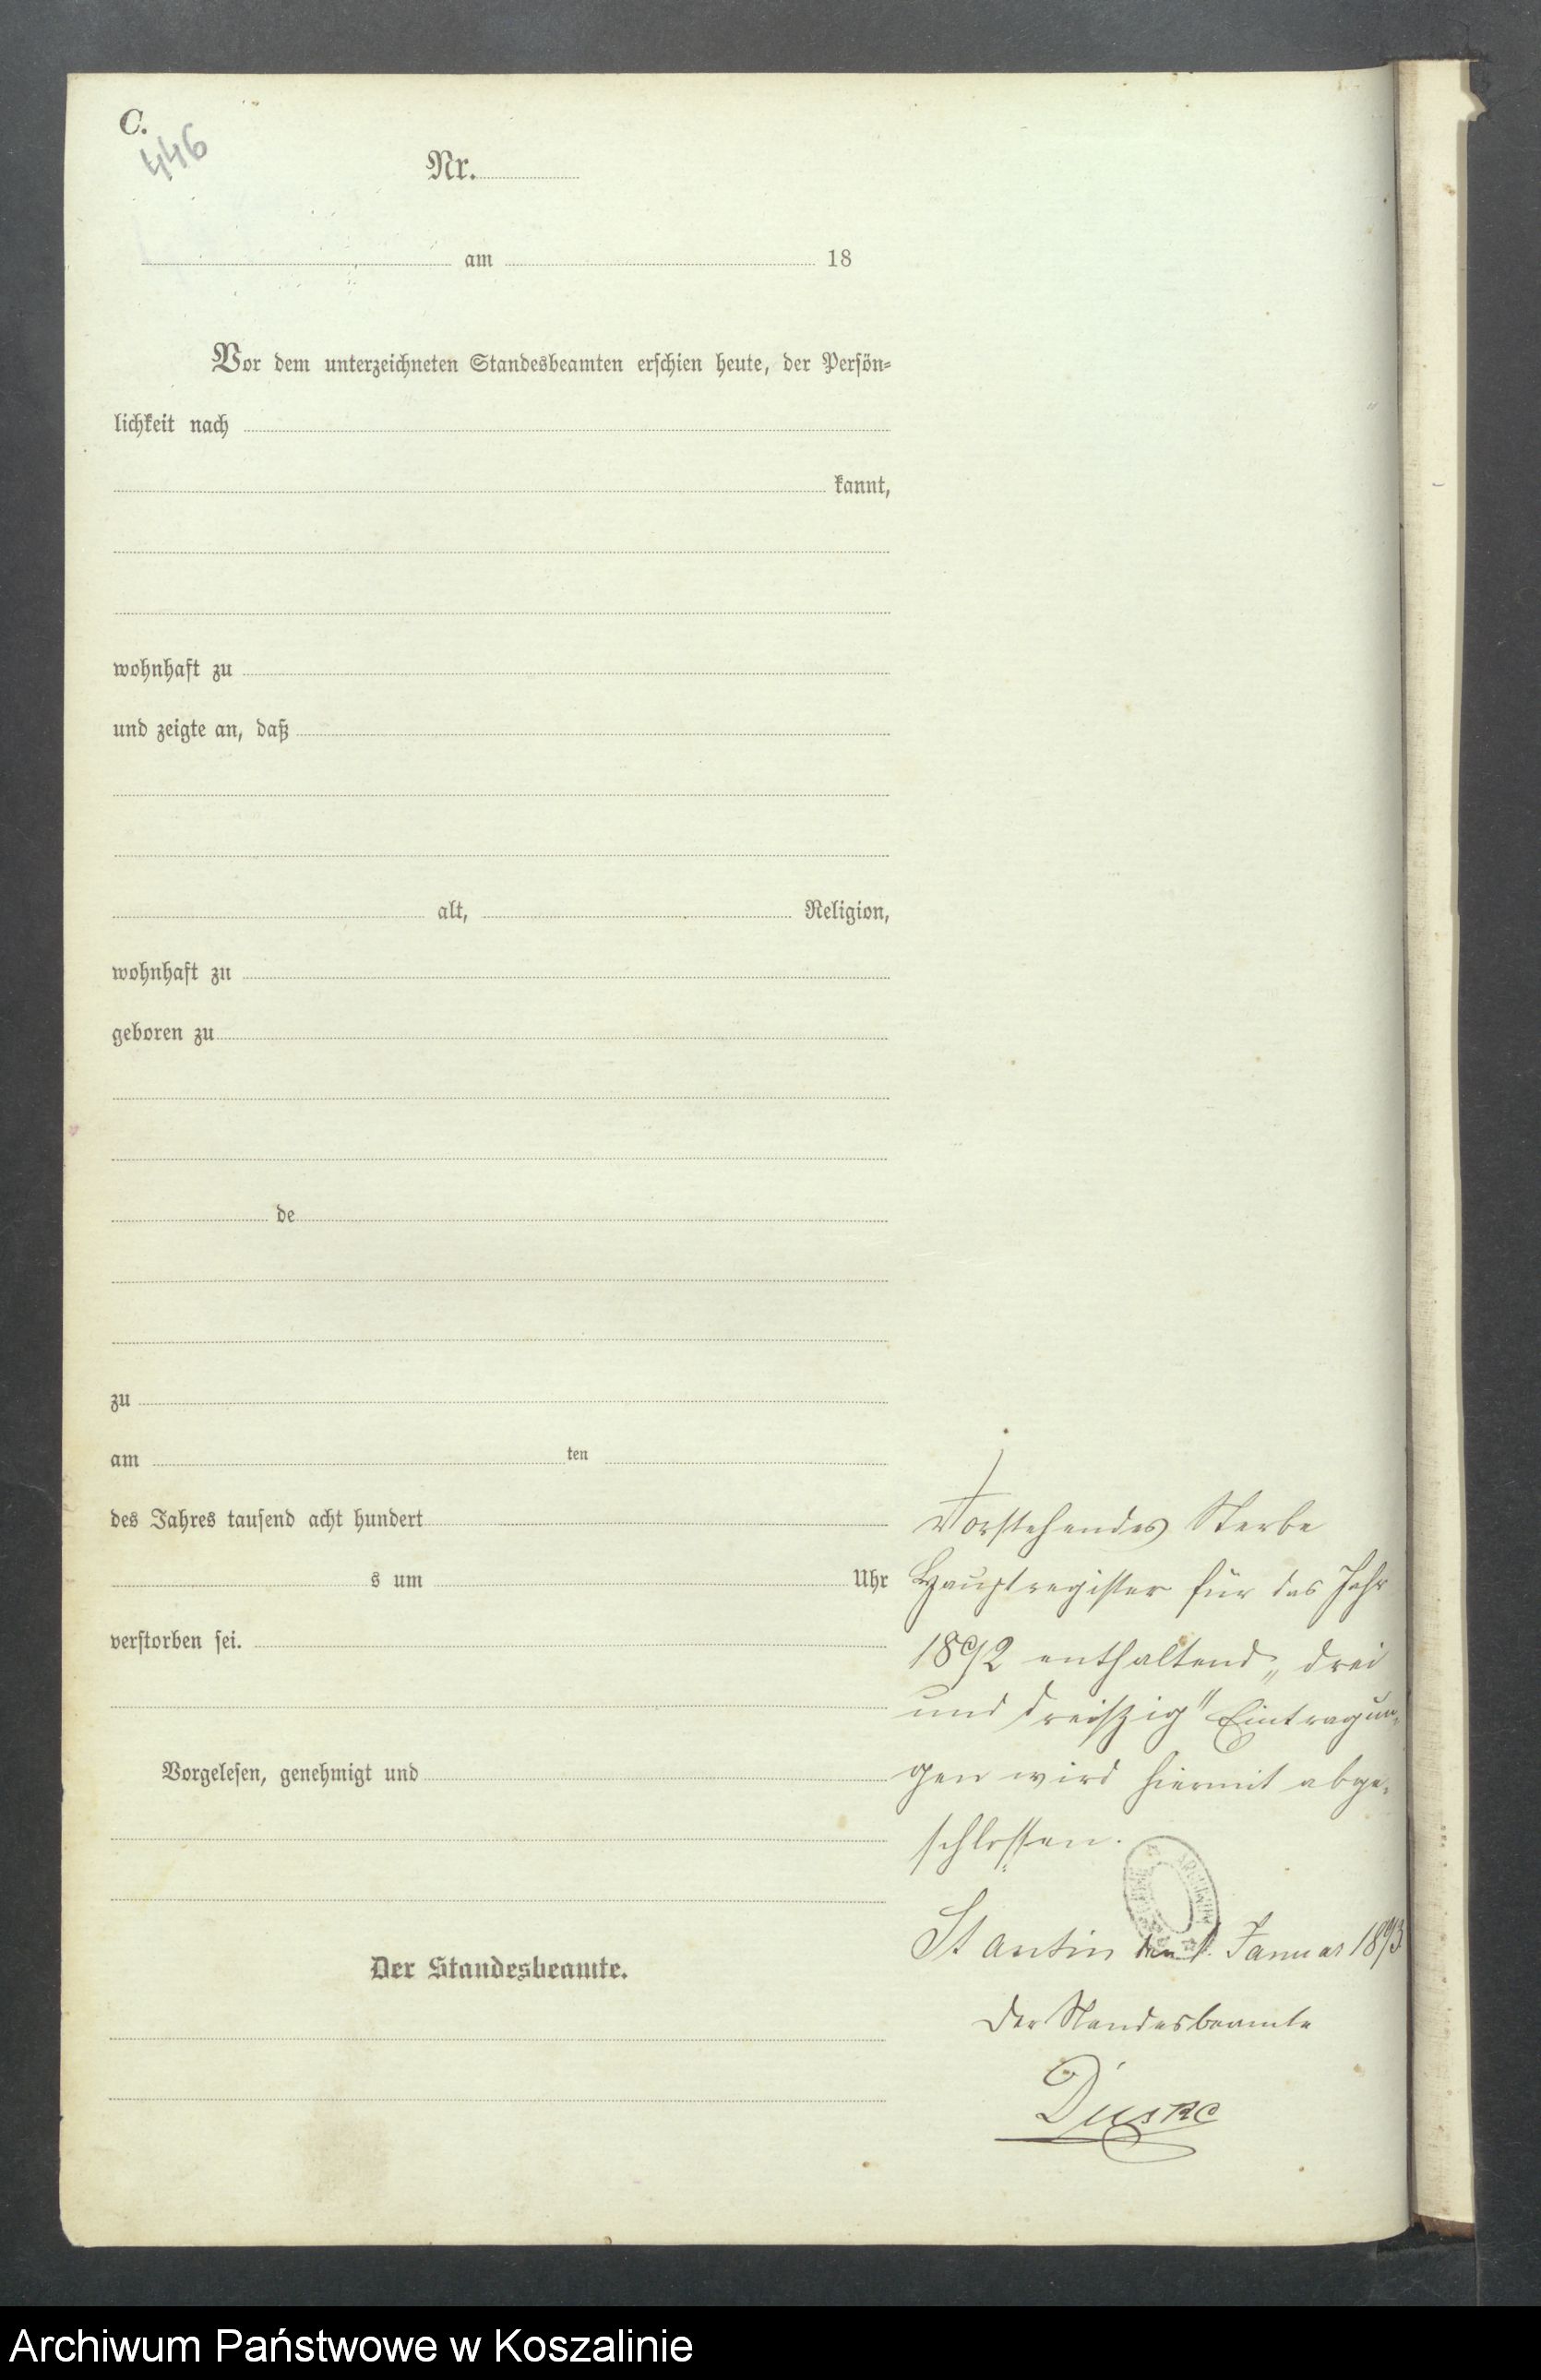 C.
446
Nr.
am 18
Vor dem unterzeichneten Standesbeamten erschien heute, der Persön=
lichkeit nach
kannt,
wohnhaft zu
und zeigte an, daß
alt, Religion,
wohnhaft zu
geboren zu
de
zu
am ten
des Jahres tausend acht hundert
s um Uhr
verstorben sei.
Vorgelesen, genehmigt und
Der Standesbeamte.
Vorstehendes Sterbe
Hauptregister für das Jahr
1892 enthaltend „drei
und dreiszig" Eintragun-
gen wird hiermit abge-
schlossen.
Stantin den 1. Januar 1893
Der Standesbeamte
Archiwum Państwowe w Koszalinie